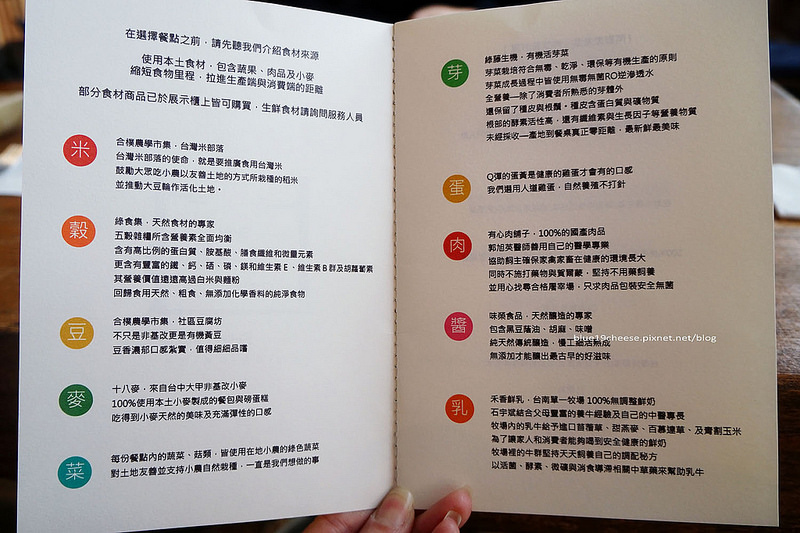 在選擇餐點之前，請先聽我們介紹食材來源
使用本土食材，包含蔬果、肉品及小麥
縮短食物里程，拉進生產端與消費端的距離
部分食材商品已於展示櫃上皆可購買，生鮮食材請詢問服務人員
米
合樸農學市集，台灣米部落
台灣米部落的使命，就是要推廣食用台灣米
鼓勵大眾吃小農以友善土地的方式所栽種的稻米
並推動大豆輪作活化土地。
穀
綠食集，天然食材的專家
五穀雜糧所含營養素全面均衡
含有高比例的蛋白質、胺基酸、膳食纖維和微量元素
更含有豐富的鐵、鈣、硒、磷、鎂和維生素E、維生素B群及胡蘿蔔素
其營養價值遠遠高過白米與麵粉
回歸食用天然、粗食、無添加化學香料的純淨食物
豆
合樸農學市集，社區豆腐坊
不只是非基改更是有機黃豆
豆香濃郁口感紮實，值得細細品嚐
麥
十八麥，來自台中大甲非基改小麥
100%使用本土小麥製成的餐包與磅蛋糕
吃得到小麥天然的美味及充滿彈性的口感
菜
每份餐點內的蔬菜、菇類，皆使用在地小農的綠色蔬菜
對土地友善並支持小農自然栽種，一直是我們想做的事
芽
綠藤生機，有機活芽菜
芽菜栽培符合無毒、乾淨、環保等有機生產的原則
芽菜成長過程中皆使用無毒無菌RO逆滲透水
全營養—除了消費者所熟悉的芽體外
還保留了種皮與根鬚。種皮含蛋白質與礦物質
根部的酵素活性高，還有纖維素與生長因子等營養物質
未經採收—產地到餐桌真正零距離，最新鮮最美味
蛋
Q彈的蛋黃是健康的雞蛋才會有的口感
我們選用人道雞蛋，自然養殖不打針
肉
有心肉舖子，100%的國產肉品
郭旭英醫師善用自己的醫學專業
協助飼主確保家禽家畜在健康的環境長大
同時不施打藥物與賀爾蒙，堅持不用藥飼養
並用心找尋合格屠宰場，只求肉品包裝安全無菌
醬
味榮食品，天然釀造的專家
包含黑豆蔭油、胡麻、味噌
純天然傳統釀造，慢工細活熟成
無添加才能釀出最古早的好滋味
blue19cheese.pixnet.net/blog
乳
禾香鮮乳，台南單一牧場 100%無調整鮮奶
石宇斌結合父母豐富的養牛經驗及自己的中醫專長
牧場內的乳牛給予進口苜蓿草、甜燕麥、百慕達草、及青割玉米
為了讓家人和消費者能夠喝到安全健康的鮮奶
牧場裡的牛群堅持天天飼養自己的調配秘方
以活菌、酵素、微礦與消食導滯相關中草藥來幫助乳牛